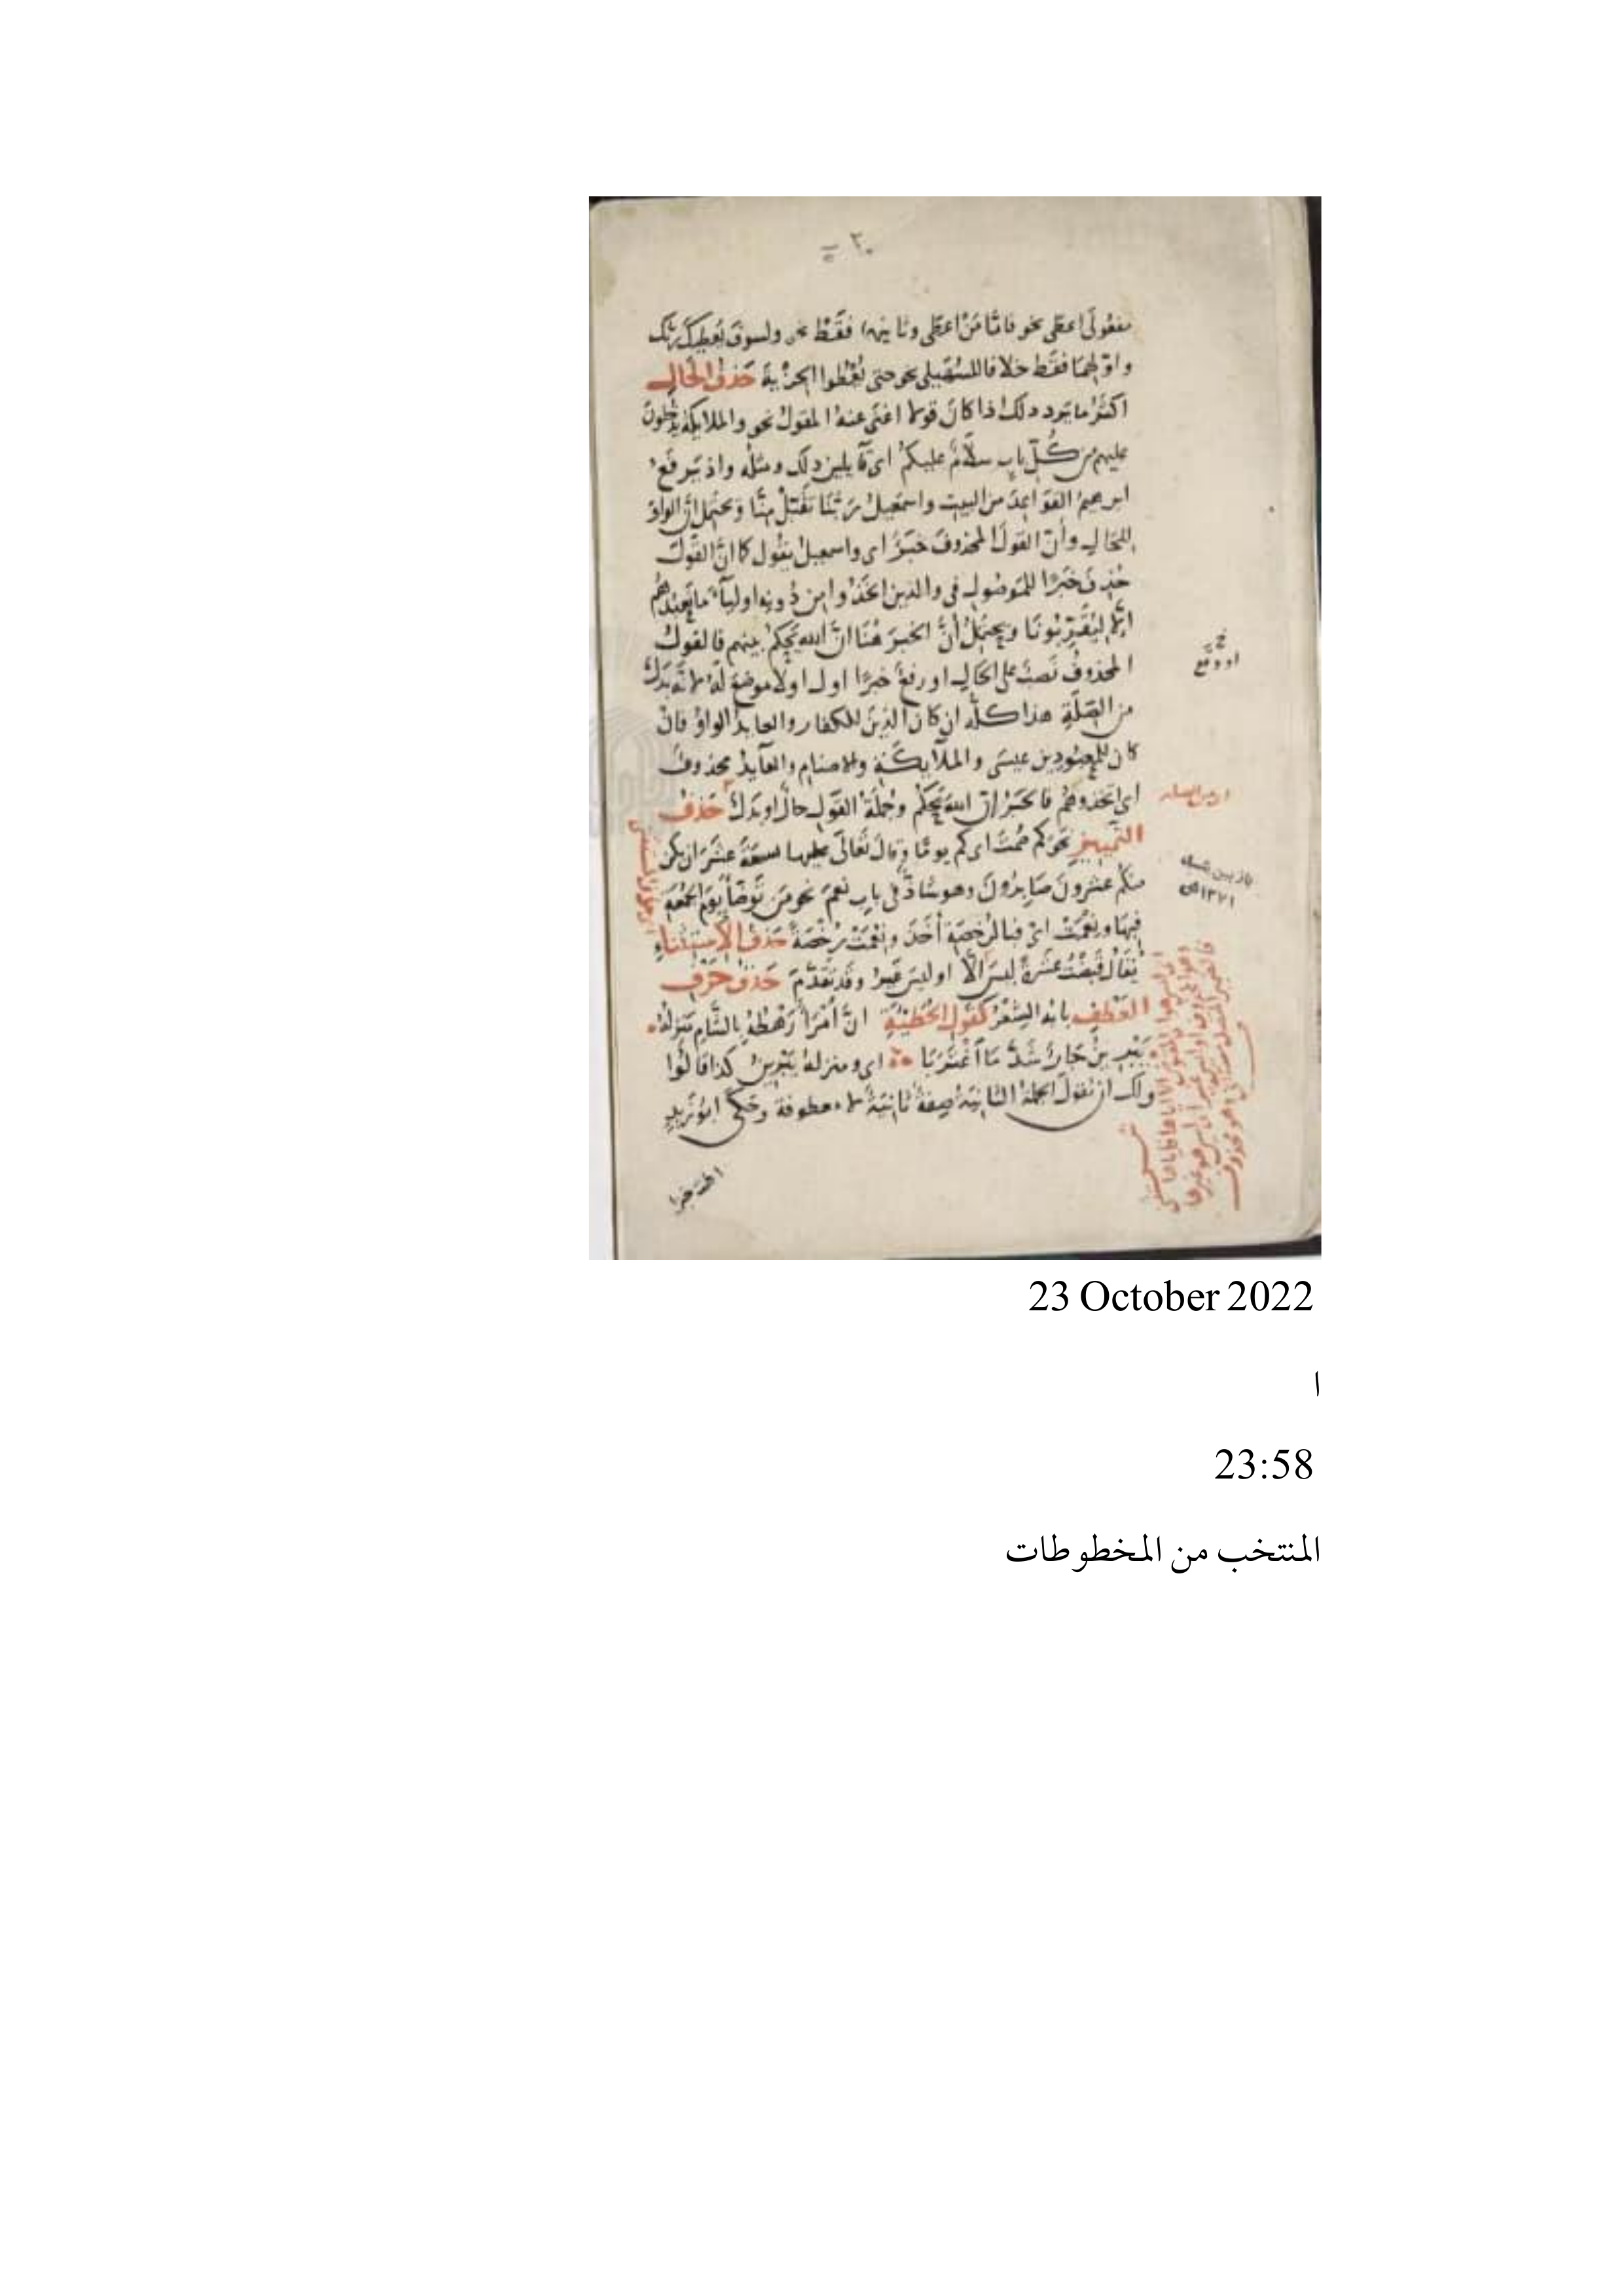 ٣٠
مفعولى اعطى نحو فامّا مَنْ اعطى وثانيهما فقَطْ نحو ولسوفَ يُعطيكَ ربّك
واوّلهمَا فقَط خلافا للسُّهَيلى نحو حتى يُعْطُوا الجزْيةَ حَذفُ الحَالِ
اكثَرُ ما يَرد ذلك اذا كانَ قولا اغنى عنهُ المقولُ نحو والملايكة يَدخلونَ
عليهم من كُلّ بابٍ سَلامٌ عليكمْ اى قآيلين ذلك ومثلُه واذ يَرفَعُ
ابرهيمُ القوَاعِدَ من البيتِ واسمَعيلُ رَبَّنَا تقَبَّلْ مِنَّا وَيحتمل انّ الواوَ
للحَالِ وأنّ القولَ المحذوفَ خبَرٌ اى واسمعيلُ يقُول كما انَّ القَولَ
حُذِفَ خَبَرًا للمَوصُولِ فى والذين اتخَذُوا من دُونِه اوليآءَ ما نَعبُدهُم
إلّا ليُقَرِّبُونَا ويحتمِلُ أنَّ الخبرَ هُنَا انَّ الله يَحكُمُ بينهم فالقولُ
المحذوفُ نَصبٌ على الحَالِ او رفعٌ خبرًا اول او لا موضعَ لَهُ لانّه بَدَلٌ
من الصِّلَةِ هذا كلُّه ان كان الذينَ للكفار والعايدُ الواوُ فانْ
كان للمعبُودين عيسَى والملآيكَةِ والاصنامِ والعآيدُ محذوفٌ
اى اتخذوهُم فالخبَرُ إنّ اللهَ يَحكُمُ وجُملَةُ القَولِ حالٌ او بَدَلٌ حَذفُ
التّمييزِ نحوَ كم صُمتَ اى كم يومًا وقالَ تعَالَى عليهَا تسعَةَ عَشَرَ ان يكن
منكُم عشرونَ صَابرُونَ وهو شاذٌّ فى بابِ نعمَ نحو مَن تَوَضأَ يَومَ الجُمُعَةِ
فبِهَا ونِعْمَتْ اىْ فبالرُخصَةِ أخَذَ ونِعْمَتْ رُخْصَةً حَذفُ الاِستِثنَاءِ
يُقَالُ قَبَضْتُ عَشرةً ليسَ الّا او ليسَ غيرُ وقَد تقَدَّمَ حَذفُ حَرْفِ
العَطْفِ بابُه الشِّعْرُ كقَولِ الحُطَيْئَةِ انَّ أمْرَأً رَهْطُهُ بالشَّامِ مَنزلُهُ
بِيَبْرِينَ جَارًا شَدَّ مَا أغْتَرَبَا اى ومنزلهُ بِيَبْرِينَ كذا قالُوا
ولك ان تقولَ الجملةُ الثانيَةُ صِفةٌ ثانِيَةٌ لا معطوفة وَحَكَى ابُو زَيدٍ
23 October 2022
ا
23:58
المنتخب من المخطوطات